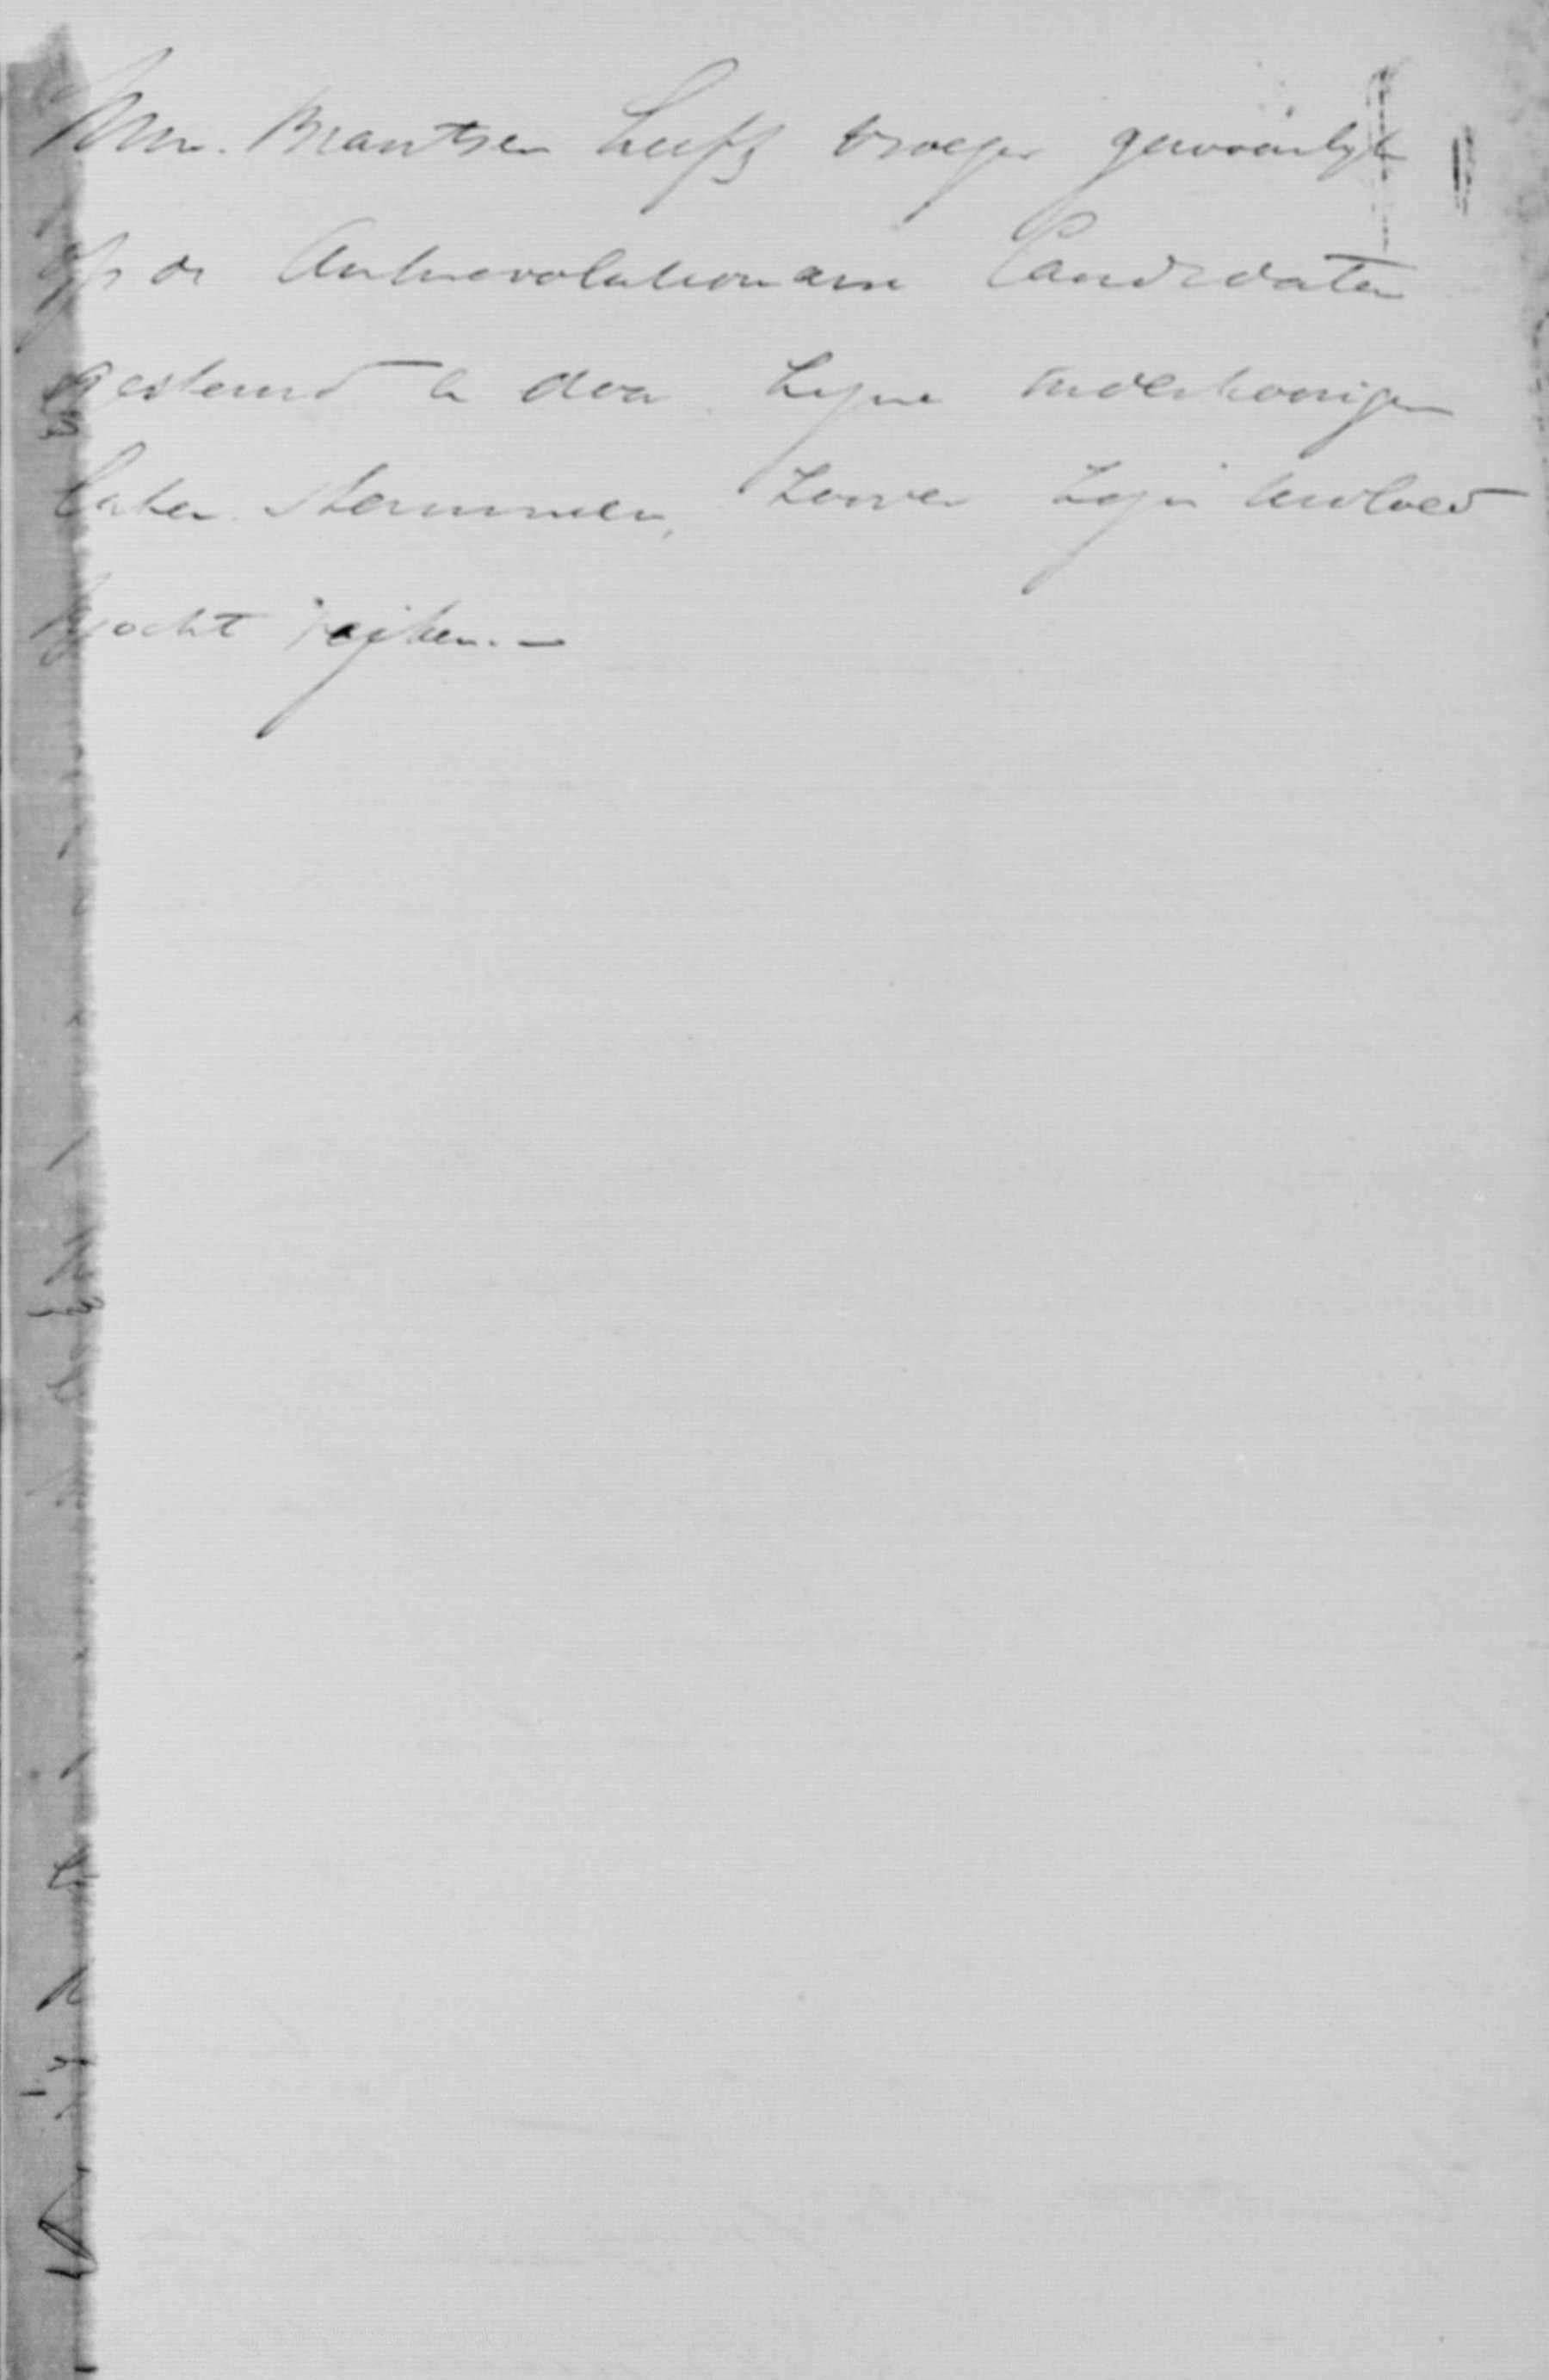 Mr. Brantsen heeft vroeger gewoonlyk
op de Antirevolutionaire Candidaten
gestemd en door zyne onderhoorigen
laten stemmen, zoover zijn invloed
mocht rijken. —